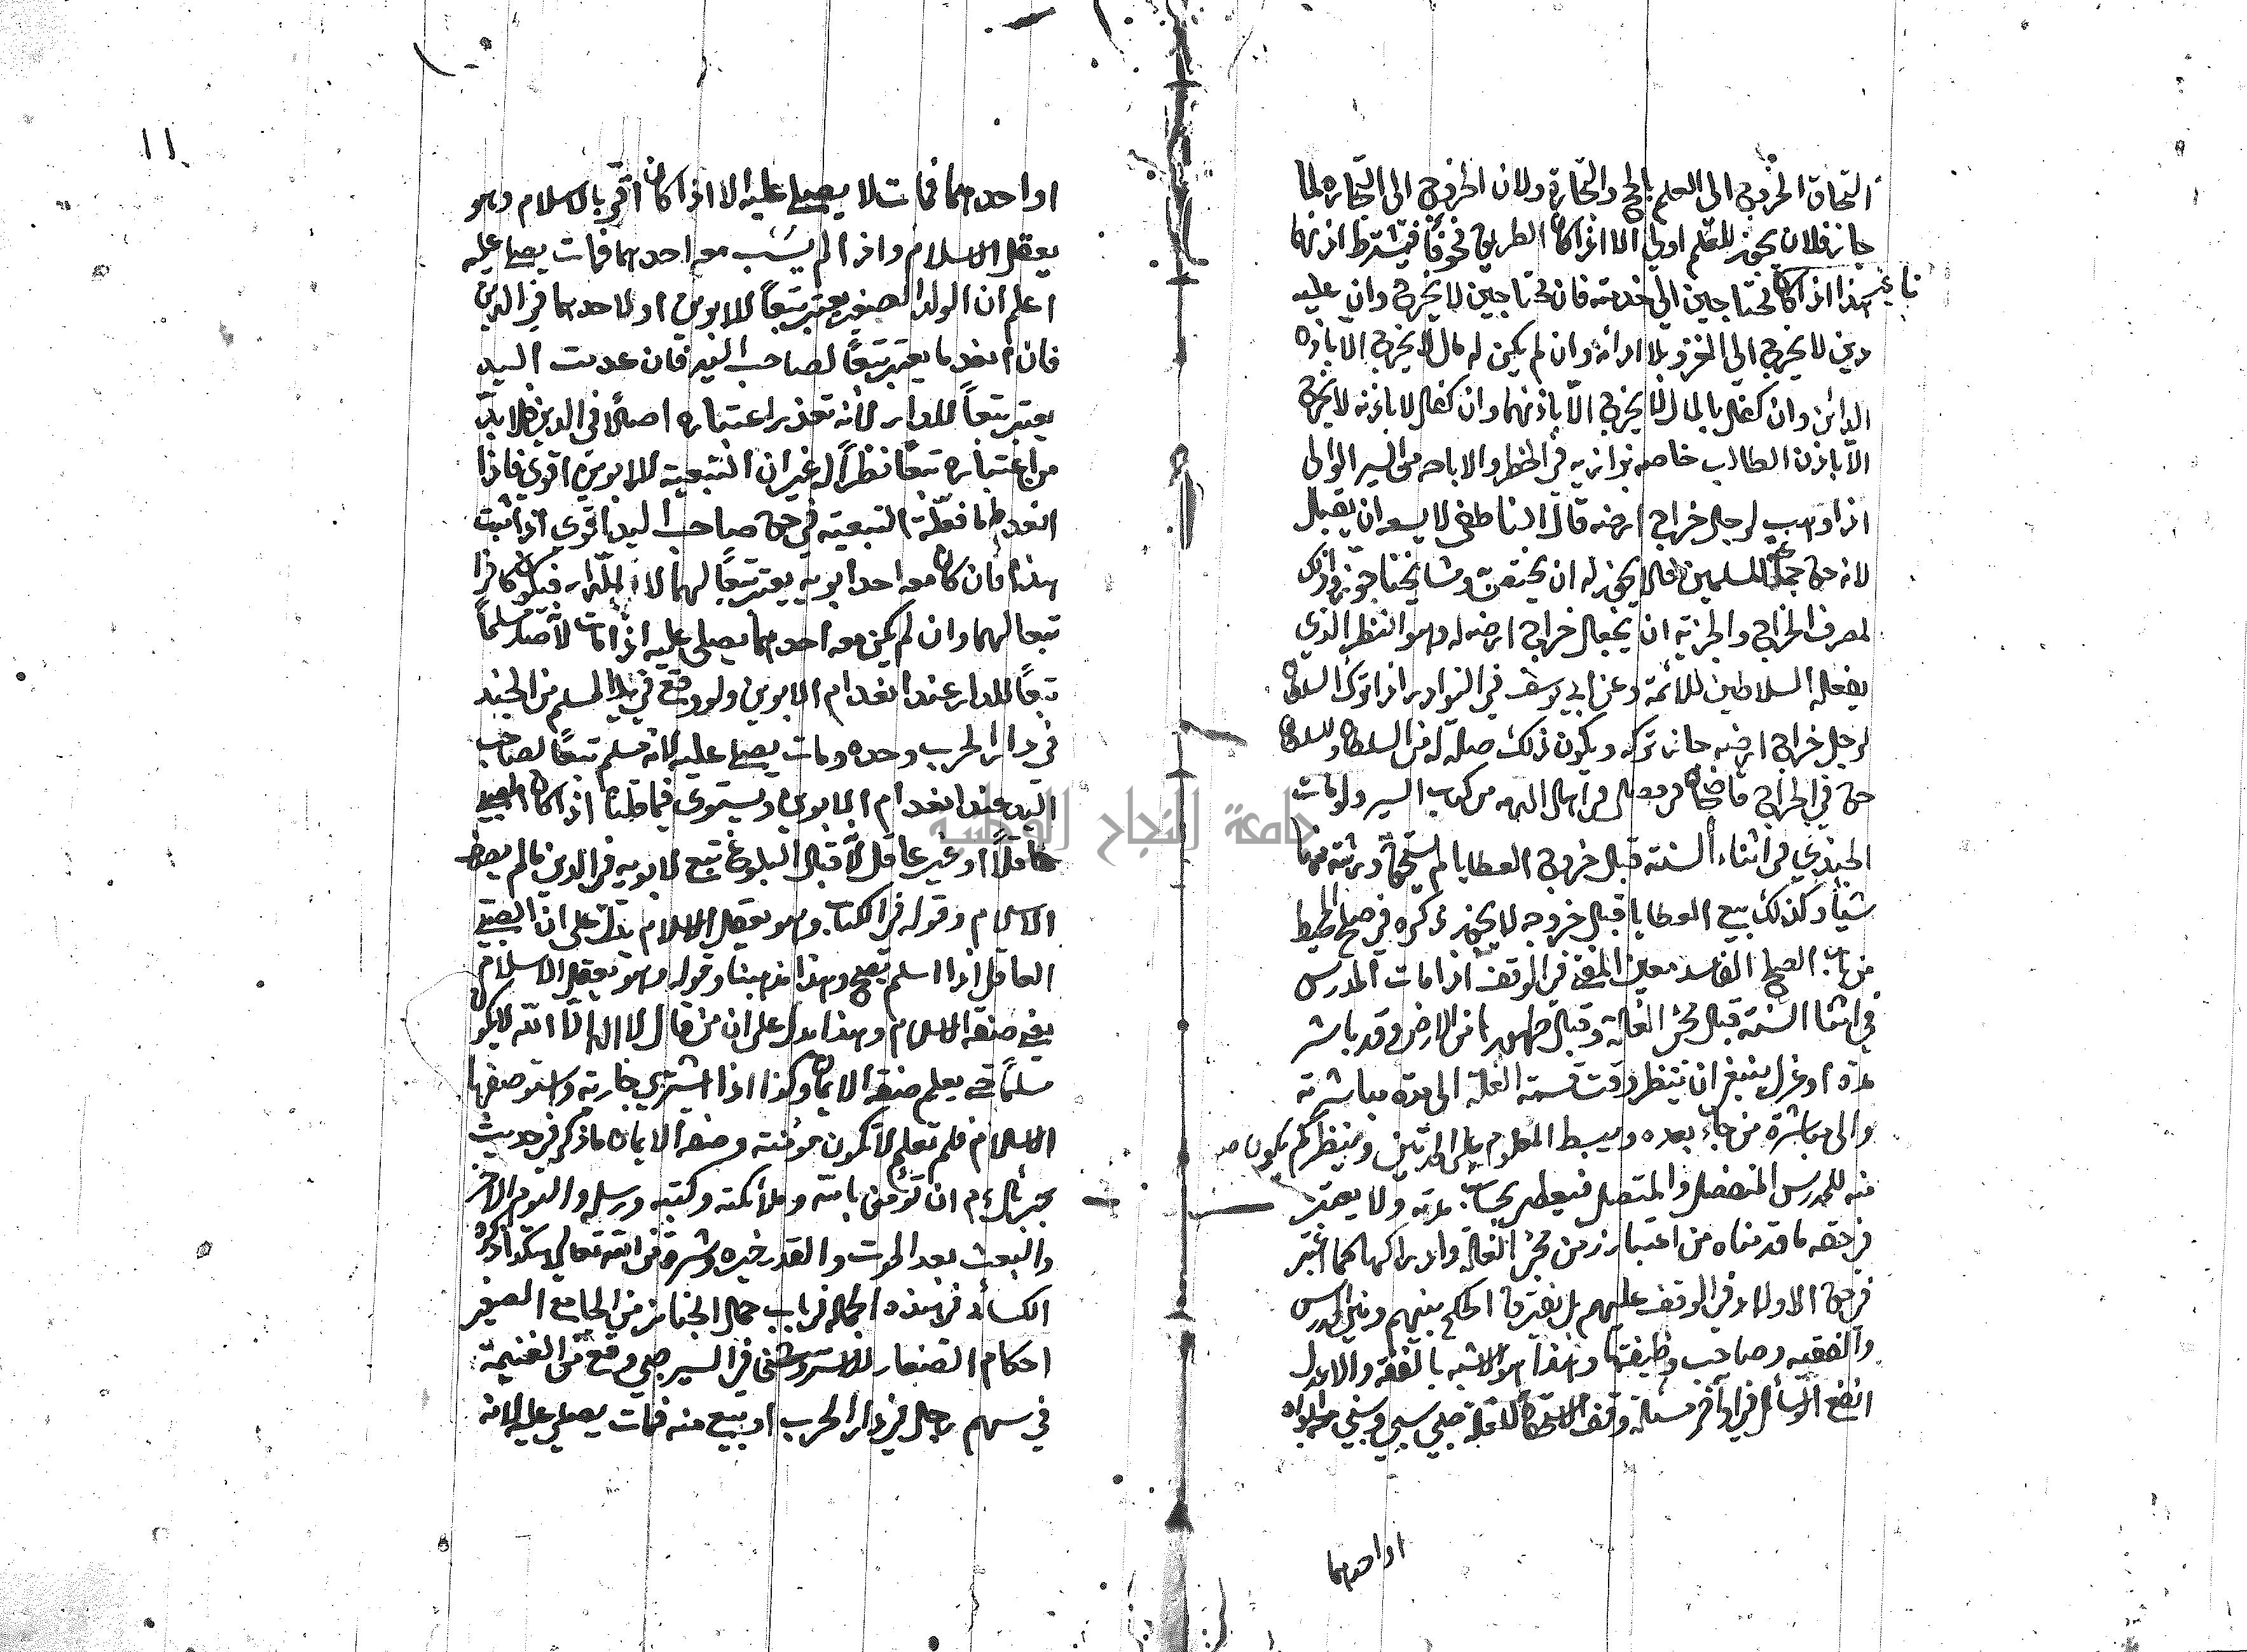 التحاق الخروج الى العلم بالحج والتجارة ولان الخروج الى التجاره لما
جاز فلان يجوز للتعلم اولى الا اذا كان الطريق مخوفا فيشترط اذنهما
هذا اذا كانا محتاجين الى خدمته فان محتاجين لا يخرج وان عليه
دين لا يخرج الى الغزو بلا ادائه وان لم يكن له مال لا يخرج الا باذن
الدائن وان كفل بالمال لا يخرج الا باذنهما وان كفل لا باذنه لا يخرج
الا باذن الطالب خاصه بزازيه في الحظر والاباحه من السير الوالى
اذا وهب لرجل خراج ارضه قال الناطفى لا يسعه ان يقبل
لانه حق جملة المسلمين فلا يجوز له ان يختص ومشايخنا جوزوا ذلك
لمصرف الخراج والجزية ان يجعل خراج ارضه له وهو النظر الذي
يفعله السلاطين للائمة وعن ابي يوسف في النوادر اذا ترك السلطان
لرجل خراج ارضه جاز تركه ويكون ذلك صلة له من السلطان وللسلطان
حق في الخراج قاضيخان في اهل الذمه من كتاب السير ولو مات
الجندي في اثناء السنة قبل خروج العطايا لم يستحق ورثته منها
شيأ وكذلك بيع العطايا قبل خروجه لا يجوز ذكره في صلح المحيط
من باب الصلح الفاسد معين المفتي في الوقف اذا مات المدرس
في اثنا السنة قبل مجئ الغلة وقبل ظهورها من الارض وقد باشر
مدة او عزل ينبغي ان ينظر وقت قسمة الغلة الى مدة مباشرته
والى مباشرة من جاء بعده ويبسط المعلوم على المدرسين وينظر كم يكون
منه للمدرس المنفصل والمتصل فيعطى بحساب مدته ولا يعتبر
في حقه ما قدمناه من اعتبار زمن مجئ الغلة وادراكها كما اعتبر
في حق الاولاد في الوقف عليهم بل يفترق الحكم بينهم وبين المدرس
والفقيه وصاحب وظيفتها وهذا هو الاشبه بالفقه والاعدل
انفع الوسائل في اواخر مسئلة وقف الاستحقاق للغلة صبي سبي وسبي معه ابواه
او احدهما
١١
او احدهما فمات لا يصلى عليه الا اذا كان اقر بالاسلام وهو
يعقل الاسلام واذا لم يسب معه احدهما فمات يصلى عليه
اعلم ان الولد الصغير يعتبر تبعاً للابوين او لاحدهما في الدين
فان انعدما يعتبر تبعاً لصاحب اليد فان عدمت اليد
يعتبر تبعاً للدار لانه تعذر اعتباره اصلاً في الدين فلا بد
من اعتباره تبعاً نظراً له غير ان التبعية للابوين اقوى فاذا
انعدما فعلة التبعية في حق صاحب اليد اقوى اذا ثبت
هذا فان كان معه احد ابويه يعتبر تبعاً لهما لا للدار فيكون كافرا
تبعا لهما وان لم يكن معه احدهما يصلى عليه اذا مات لانه صار مسلماً
تبعاً للدار عند انعدام الابوين ولو وقع في يد المسلم من الجند
في دار الحرب وحده ومات يصلى عليه لانه مسلم تبعاً لصاحب
اليد عند انعدام الابوين ويستوى فيما قلنا اذا كان الصبي
عاقلاً او غير عاقل لانه قبل البلوغ تبع لابويه في الدين مالم يصف
الاسلام وقوله في الكتاب وهو يعقل الاسلام يدل على ان الصبي
العاقل اذا اسلم يصح وهذا مذهبنا وقوله وهو يعقل الاسلام
يعني صفة الاسلام وهذا يدل على ان من قال لا اله الا الله لا يكون
مسلماً حتى يعلم صفة الايمان وكذا اذا اشترى جارية واستوصفها
الاسلام فلم تعلم لا تكون مؤمنة وصفة الايمان ما ذكر في حديث
جبرائيل ءم ان تؤمن بالله وملائكته وكتبه ورسله واليوم الاخر
والبعث بعد الموت والقدر خيره وشره من الله تعالى هكذا ذكره
في هذه الجملة في باب حمل الجنائز من الجامع الصغير
احكام الصغار للاستروشنى في السير صبي وقع من الغنيمة
في سهم رجل في دار الحرب او بيع منه فمات يصلى عليه لانه
جامعة النجاح الوطنية